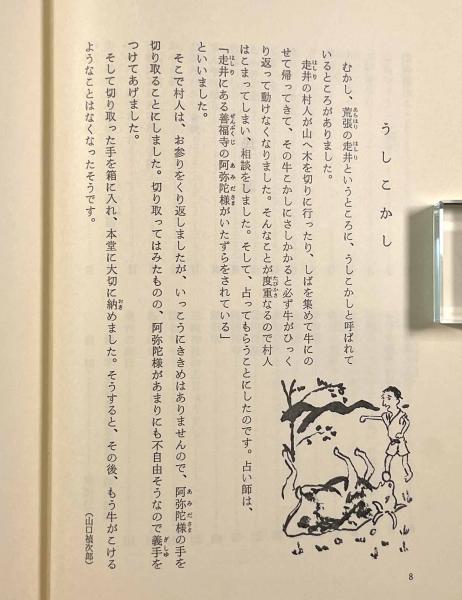 うしこかし
むかし、荒張の走井というところに、うしこかしと呼ばれて
いるところがありました。
走井の村人が山へ木を切りに行ったり、しばを集めて牛にの
せて帰ってきて、その牛こかしにさしかかると必ず牛がひっく
り返って動けなくなりました。そんなことが度重なるので村人
はこまってしまい、相談をしました。そして、占ってもらうことにしたのです。占い師は、
「走井にある善福寺の阿弥陀様がいたずらをされている」
といいました。
そこで村人は、お参りをくり返しましたが、いっこうにききめはありませんので、阿弥陀様の手を
切り取ることにしました。切り取ってはみたものの、阿弥陀様があまりにも不自由そうなので義手を
つけてあげました。
そして切り取った手を箱に入れ、本堂に大切に納めました。そうすると、その後、もう牛がこける
ようなことはなくなったそうです。
(山口禎次郎)
8